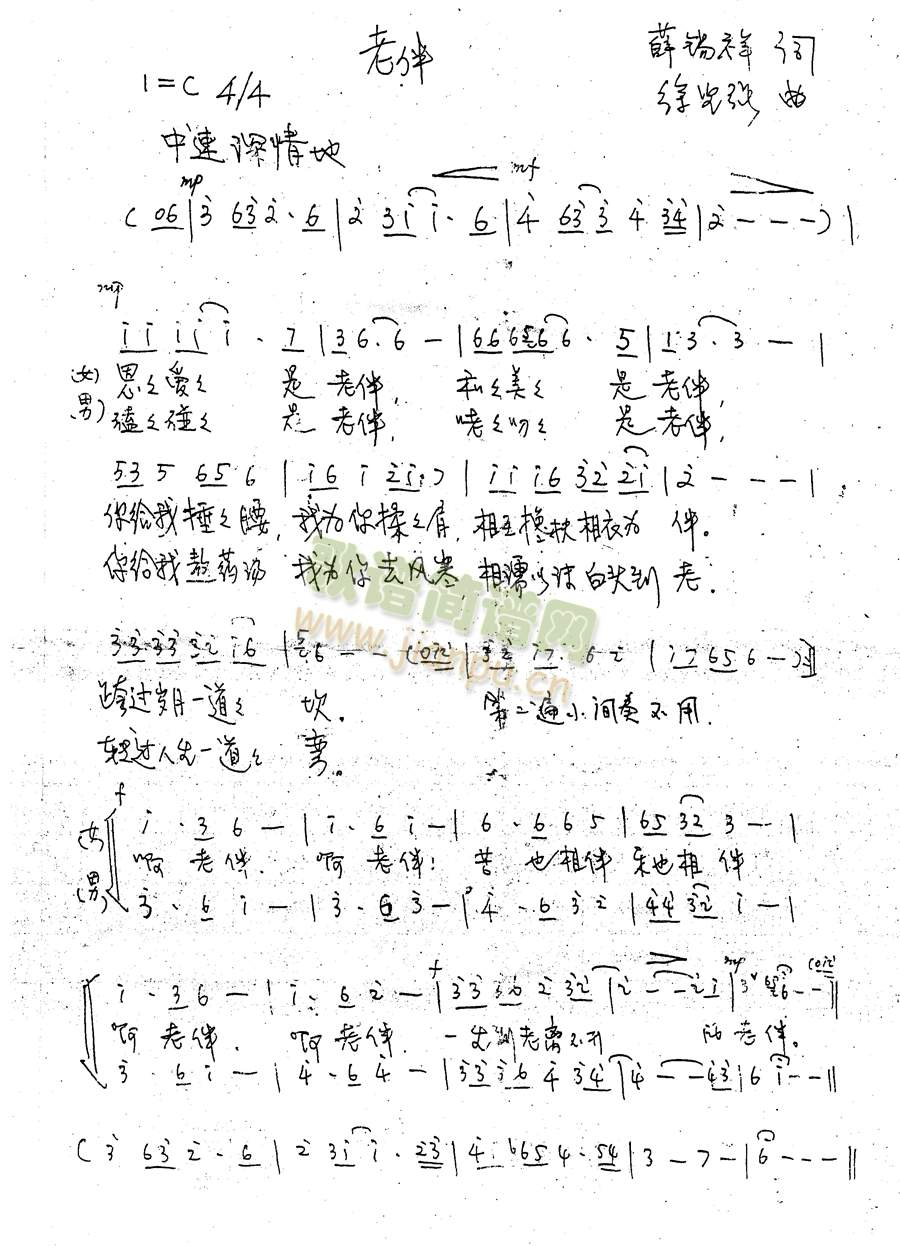 老伴
薛锡祥 词
曲
1=C 4/4
中速 深情地
mp mf
( 06 | 3̇ 63̇ 2̇ · 6 | 2̇ 3̇1̇ 1̇ · 6 | 4̇ 63̇ 3̇ 4̇ 3̇4̇ | 2̇ - - - ) |
mp
1̇1̇ 1̇1̇ 1̇ · 7 | 3 6 · 6 - | 66 6566 · 5 | 1 3 · 3 - |
(女) 恩々爱々 是老伴, 和々美々 是老伴,
(男) 磕々碰々 是老伴, 吵々吵々 是老伴,
53 5 65 6 | 1̇6 1̇ 2̇1̇ · ) | 1̇1̇ 1̇6 3̇2̇ 2̇1̇ | 2̇ - - - |
你给我捶々腰, 我为你揉々肩, 相互搀扶相依为 伴。
你给我熬药汤 我为你去风寒, 相濡以沫白头到 老。
3̇3̇ 3̇3̇ 3̇2̇ 1̇6 | 6 - - (01̇2̇ | 3̇ 2̇ 1̇7 · 6 2̇ | 1̇7 65 6 - ) ‖
跨过岁月一道々 坎。 第二遍小间奏不用.
人生一道々 弯。
f
(女) 1̇ · 3 6 - | 1̇ · 6 1̇ - | 6 · 6 6 5 | 65 32 3 - - |
啊 老伴. 啊 老伴! 苦 也相伴 乐也相 伴
(男) 3̇ · 6 1̇ - | 3̇ · 6 3̇ - | 4̇ · 6 3̇ 2̇ | 4̇4̇ 3̇2̇ 1̇ - |
f mp (01̇2̇
1̇ · 3 6 - | 1̇ · 6 2̇ - | 3̇3̇ 3̇6 2̇ 3̇2̇ | 2̇ - - 2̇1̇ | 3̇ 6 - - ‖
啊 老伴. 啊 老伴. 一生到老离不开 老伴。
3̇ · 6 1̇ - | 4̇ · 6 4̇ - | 3̇3̇ 3̇6 4̇ 3̇4̇ | 4̇ - - 4̇3̇ | 6 1̇ - - ‖
( 3̇ 63̇ 2̇ · 6 | 2̇ 3̇1̇ 1̇ · 2̇3̇ | 4̇ · 665 4 · 54 | 3 - 7 - | 6 - - - ‖
歌谱简谱网
www.jianpu.cn